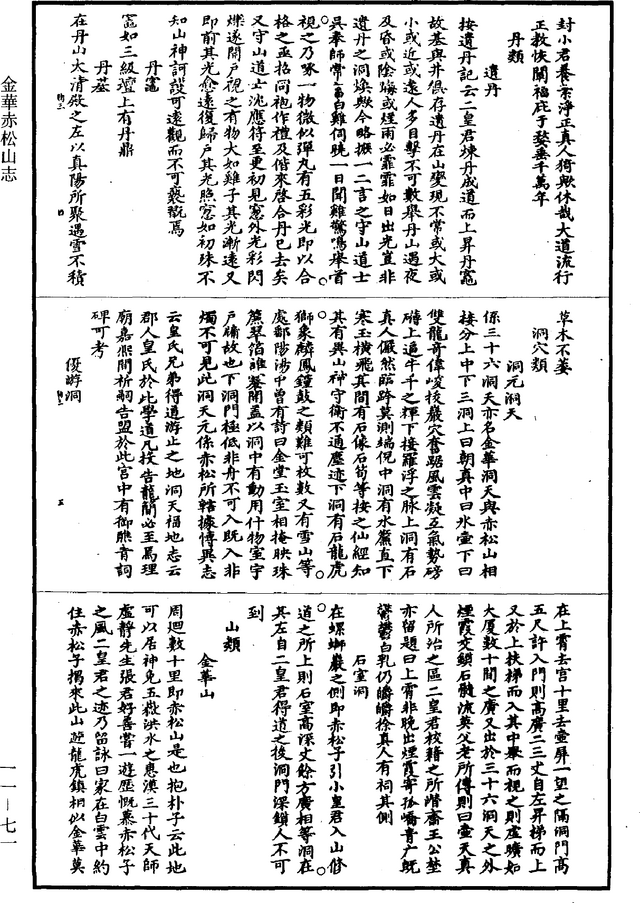 封小君養素淨正真人猗歟休哉大道流行
正教恢闡福庇于婺垂千萬年
丹類
遺丹
按遺丹記云二皇君煉丹成道而上昇丹竈
故基與井俱存遺丹在山變現不常或大或
小或近或遠人多目擊不可數舉丹山遇夜
及昏或陰晦或煙雨必霏霏如日出光直非
遺丹之洞煥歟今略撰一二言之守山道士
吳奉師常畜白雞伺曉一日聞雞驚鳴舉首
視之乃啄一物微似彈丸有五彩光即以合
格之亟拾同袍作禮及偕來啓合丹已去矣
又守山道士沈應符至更初見窻外光彩閃
爍遂開戶視之有物大如雞子其光漸遠又
即前其光愈遠復歸戶其光照窻如初珠不
知山神訶護可遠觀而不可褻翫焉
丹竈
竈如三級壇上有丹鼎
丹基
在丹山大清殿之左以真陽所聚遇雪不積
草木不萎
洞穴類
洞元洞天
係三十六洞天亦名金華洞天與赤松山相
接分上中下三洞上曰朝真中曰氷壺下曰
雙龍奇偉峻拔巖穴奮踞風雲凝互氣勢磅
礴上追牛千之輝下接羅浮之脉上洞有石
真人儼然臨跨莫測端倪中洞有水簾直下
寒玉橫飛其間有石像石筍等接之仙經知
其有異山神守衛不通塵迹下洞有石龍虎
獅象麟鳳鐘鼓之類難可枚數又有雪山等
處鄱陽涉中曾有詩曰金堂玉室相掩映珠
簾翠箔誰褰開蓋以洞中有動用什物室宇
戶牖故也下洞門極低非舟不可入既入非
燭不可見此洞天元係赤松所轄據傳異志
云皇氏兄弟得道游止之地洞天福地志云
郡人皇氏於此學道凡投告龍簡必至焉理
廟嘉熈間祈嗣告盟於此宫中有御熊青詞
碑可考
優游洞
在上霄去宫十里去壺屏一望之隔洞門高
五尺許入門則高廣二三丈自左昇梯而上
又於上挾梯而入其中舉而視之則虛曠如
大厦數十間之廣又出於三十六洞天之外
煙霞交鎖石髓流英父老所傳則曰壺天真
人所治之區二皇君校籍之所潛齋王公埜
亦留題曰上霄非晚出煙霞寄孤嶠青广既
鬱鬱白乳仍皭皭徐真人有祠其側
石室洞
在螺螄巖之側即赤松子引小皇君入山修
道之所上則石室高深丈餘方廣相等洞在
其左自二皇君得道之後洞門深鎖人不可
到
山類
金華山
周廻數十里即赤松山是也抱朴子云此地
可以居神免五兵洪水之患漢三十代天師
虛靜先生張君好善嘗一遊歷慨慕赤松子
之風二皇君之迹乃留詠曰家在白雲中約
住赤松子搗來此山遊龍虎鎮相似金華莫
金華赤松山志
一一－七一